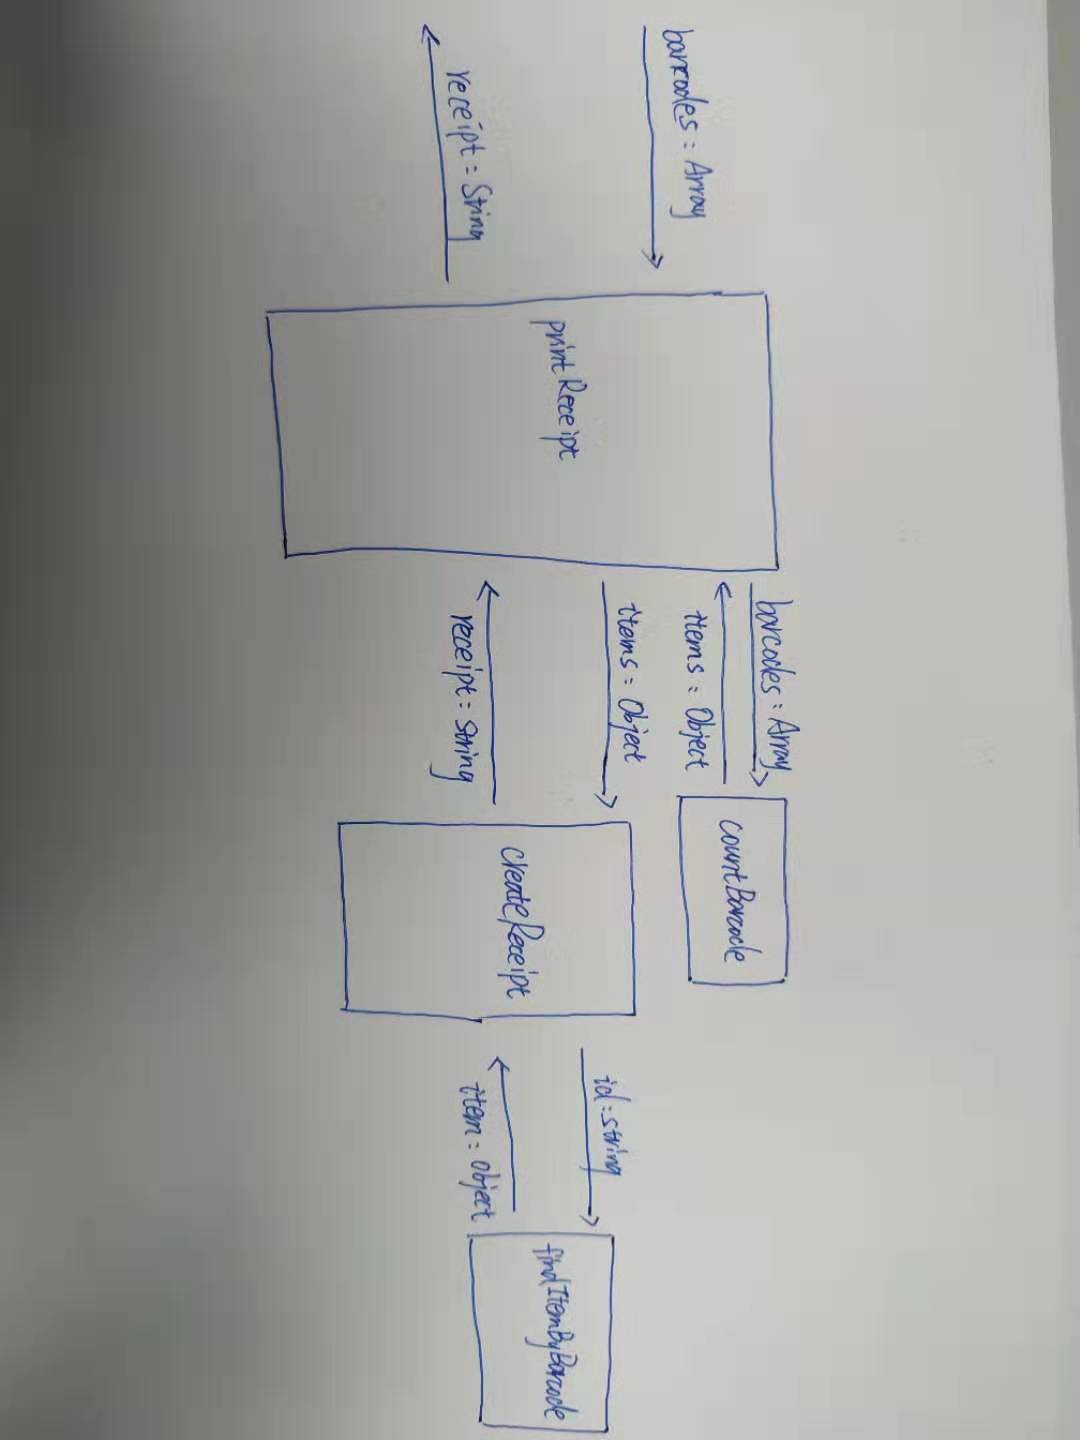 barcodes = Array
receipt = String
printReceipt
barcodes : Array
items = Object
items = Object
receipt = String
countBarcode
createReceipt
id = string
item = Object
findItemByBarcode